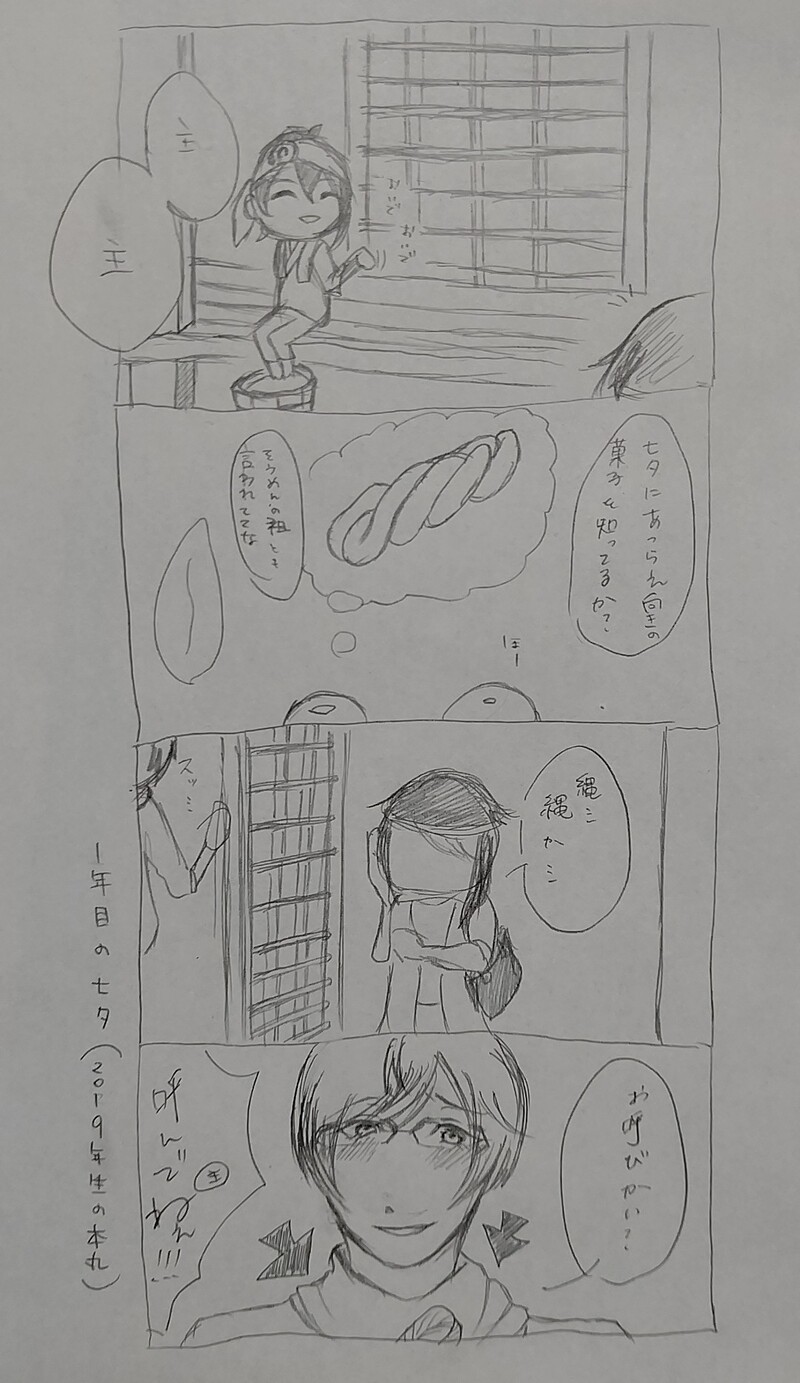 主
主
おいで
おいで
七夕にあつらえ向きの
菓子を知ってるか?
そうめんの祖とも
言われててな
ほー
縄ミ
縄かミ
スッ…
お呼びかい?
呼んでねぇ!!!
主
1年目の七夕(2019年生の本丸)